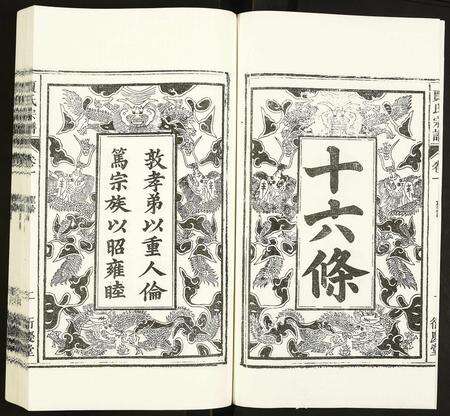 十六條
敦孝弟以重人倫
篤宗族以昭雍睦